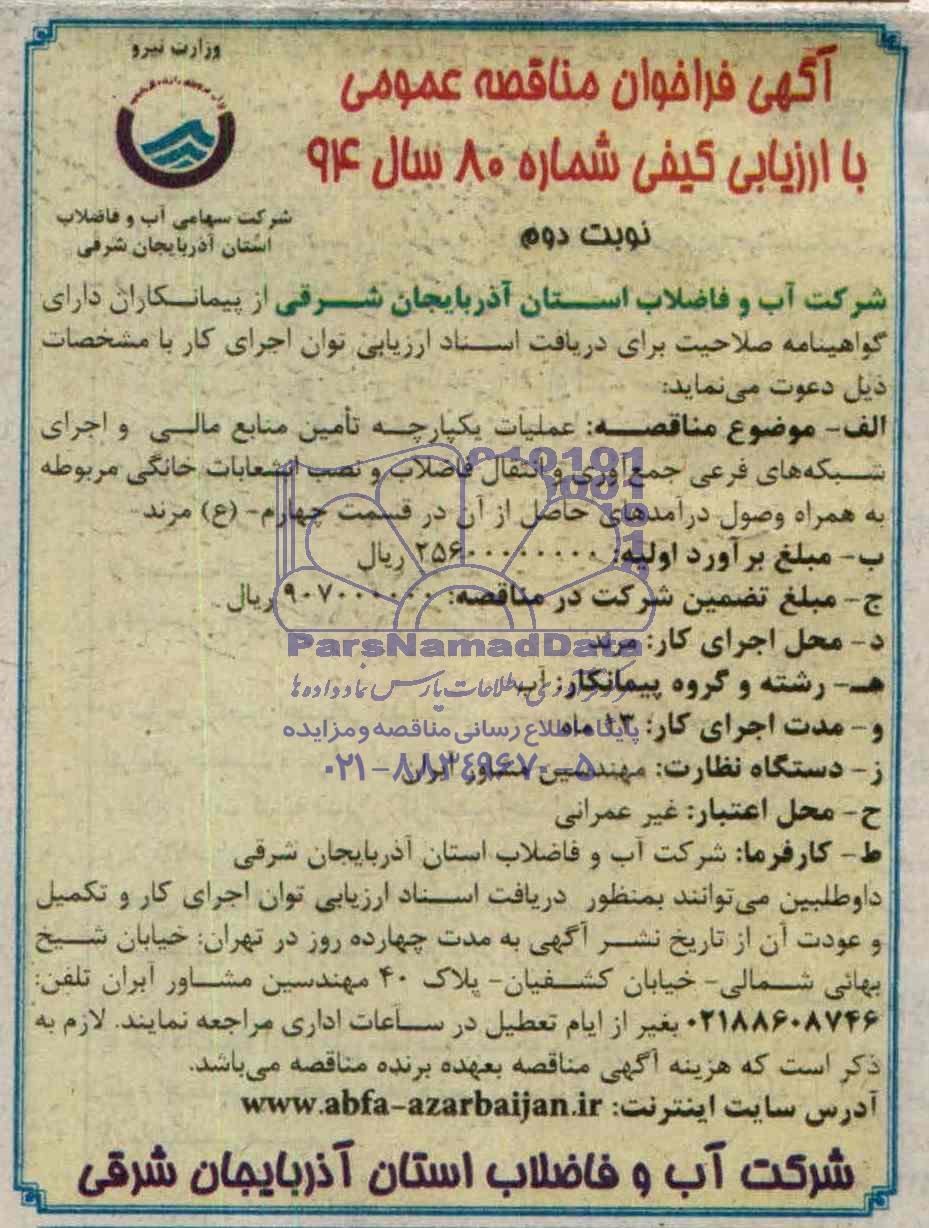 وزارت نیرو
شرکت سهامی آب و فاضلاب
استان آذربایجان شرقی
آگهی فراخوان مناقصه عمومی
با ارزیابی کیفی شماره ۸۰ سال ۹۴
نوبت دوم
شرکت آب و فاضلاب استان آذربایجان شرقی از پیمانکاران دارای
گواهینامه صلاحیت برای دریافت اسناد ارزیابی توان اجرای کار با مشخصات
ذیل دعوت می‌نماید:
الف- موضوع مناقصه: عملیات یکپارچه تأمین منابع مالی و اجرای
شبکه‌های فرعی جمع‌آوری و انتقال فاضلاب و نصب انشعابات خانگی مربوطه
به همراه وصول درآمدهای حاصل از آن در قسمت چهارم- (ع) مرند
ب- مبلغ برآورد اولیه: ریال
ج- مبلغ تضمین شرکت در مناقصه: ۹۰۷۰۰۰۰۰۰۰ ریال
د- محل اجرای کار: مرند
هـ- رشته و گروه پیمانکار: آب
و- مدت اجرای کار: ماه
ز- دستگاه نظارت: مهندسین مشاور آبران
ح- محل اعتبار: غیر عمرانی
ط- کارفرما: شرکت آب و فاضلاب استان آذربایجان شرقی
داوطلبین می‌توانند بمنظور دریافت اسناد ارزیابی توان اجرای کار و تکمیل
و عودت آن از تاریخ نشر آگهی به مدت چهارده روز در تهران: خیابان شیخ
بهائی شمالی- خیابان کشفیان- پلاک ۴۰ مهندسین مشاور آبران تلفن:
۰۲۱۸۸۶۰۸۷۴۶ بغیر از ایام تعطیل در ساعات اداری مراجعه نمایند. لازم به
ذکر است که هزینه آگهی مناقصه بعهده برنده مناقصه می‌باشد.
آدرس سایت اینترنت: www.abfa-azarbaijan.ir
شرکت آب و فاضلاب استان آذربایجان شرقی
ParsNamadData
پایگاه اطلاع رسانی مناقصه و مزایده
۰۲۱-۸۸۳۴۹۶۷۰-۵